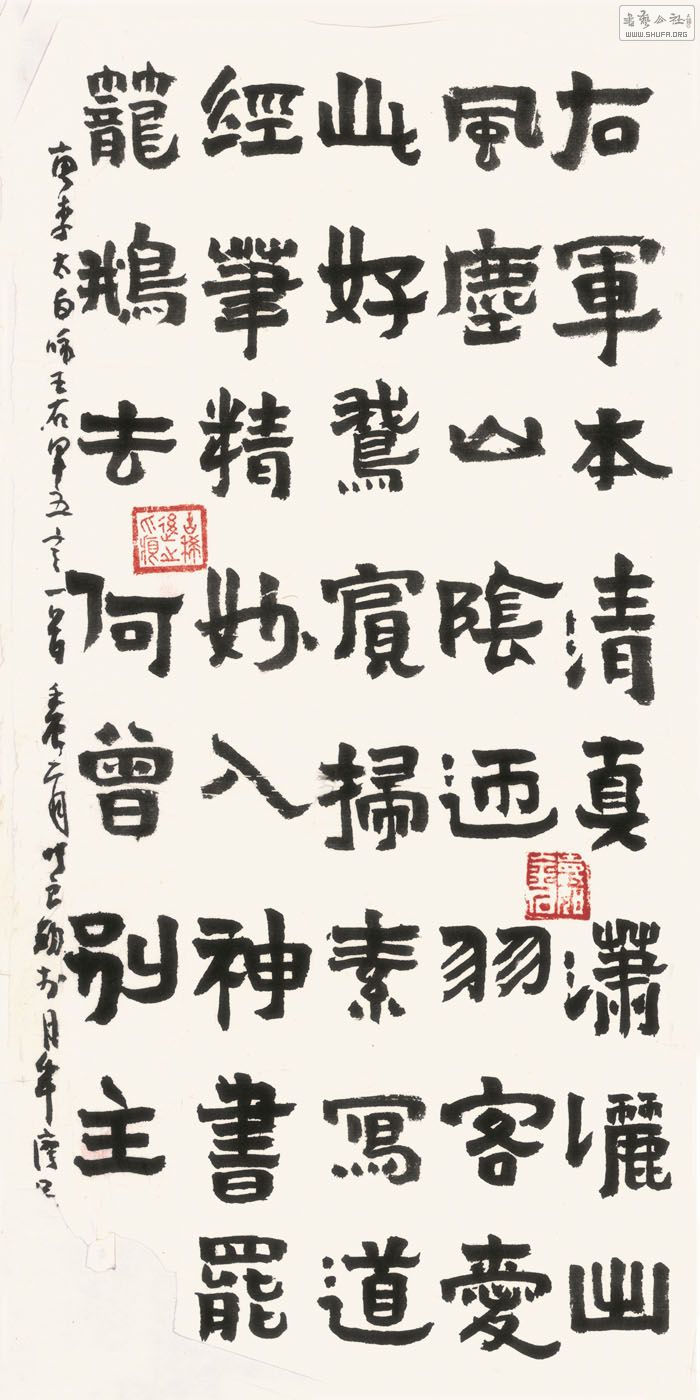 右軍本清真瀟灑出
風塵山陰過羽客愛
此好鵞賓掃素寫道
經筆精妙入神書罷
籠鵝去何曾別主
唐李太白咏王右軍五言一首 壬辰二月
书艺公社
WWW.SHUFA.ORG